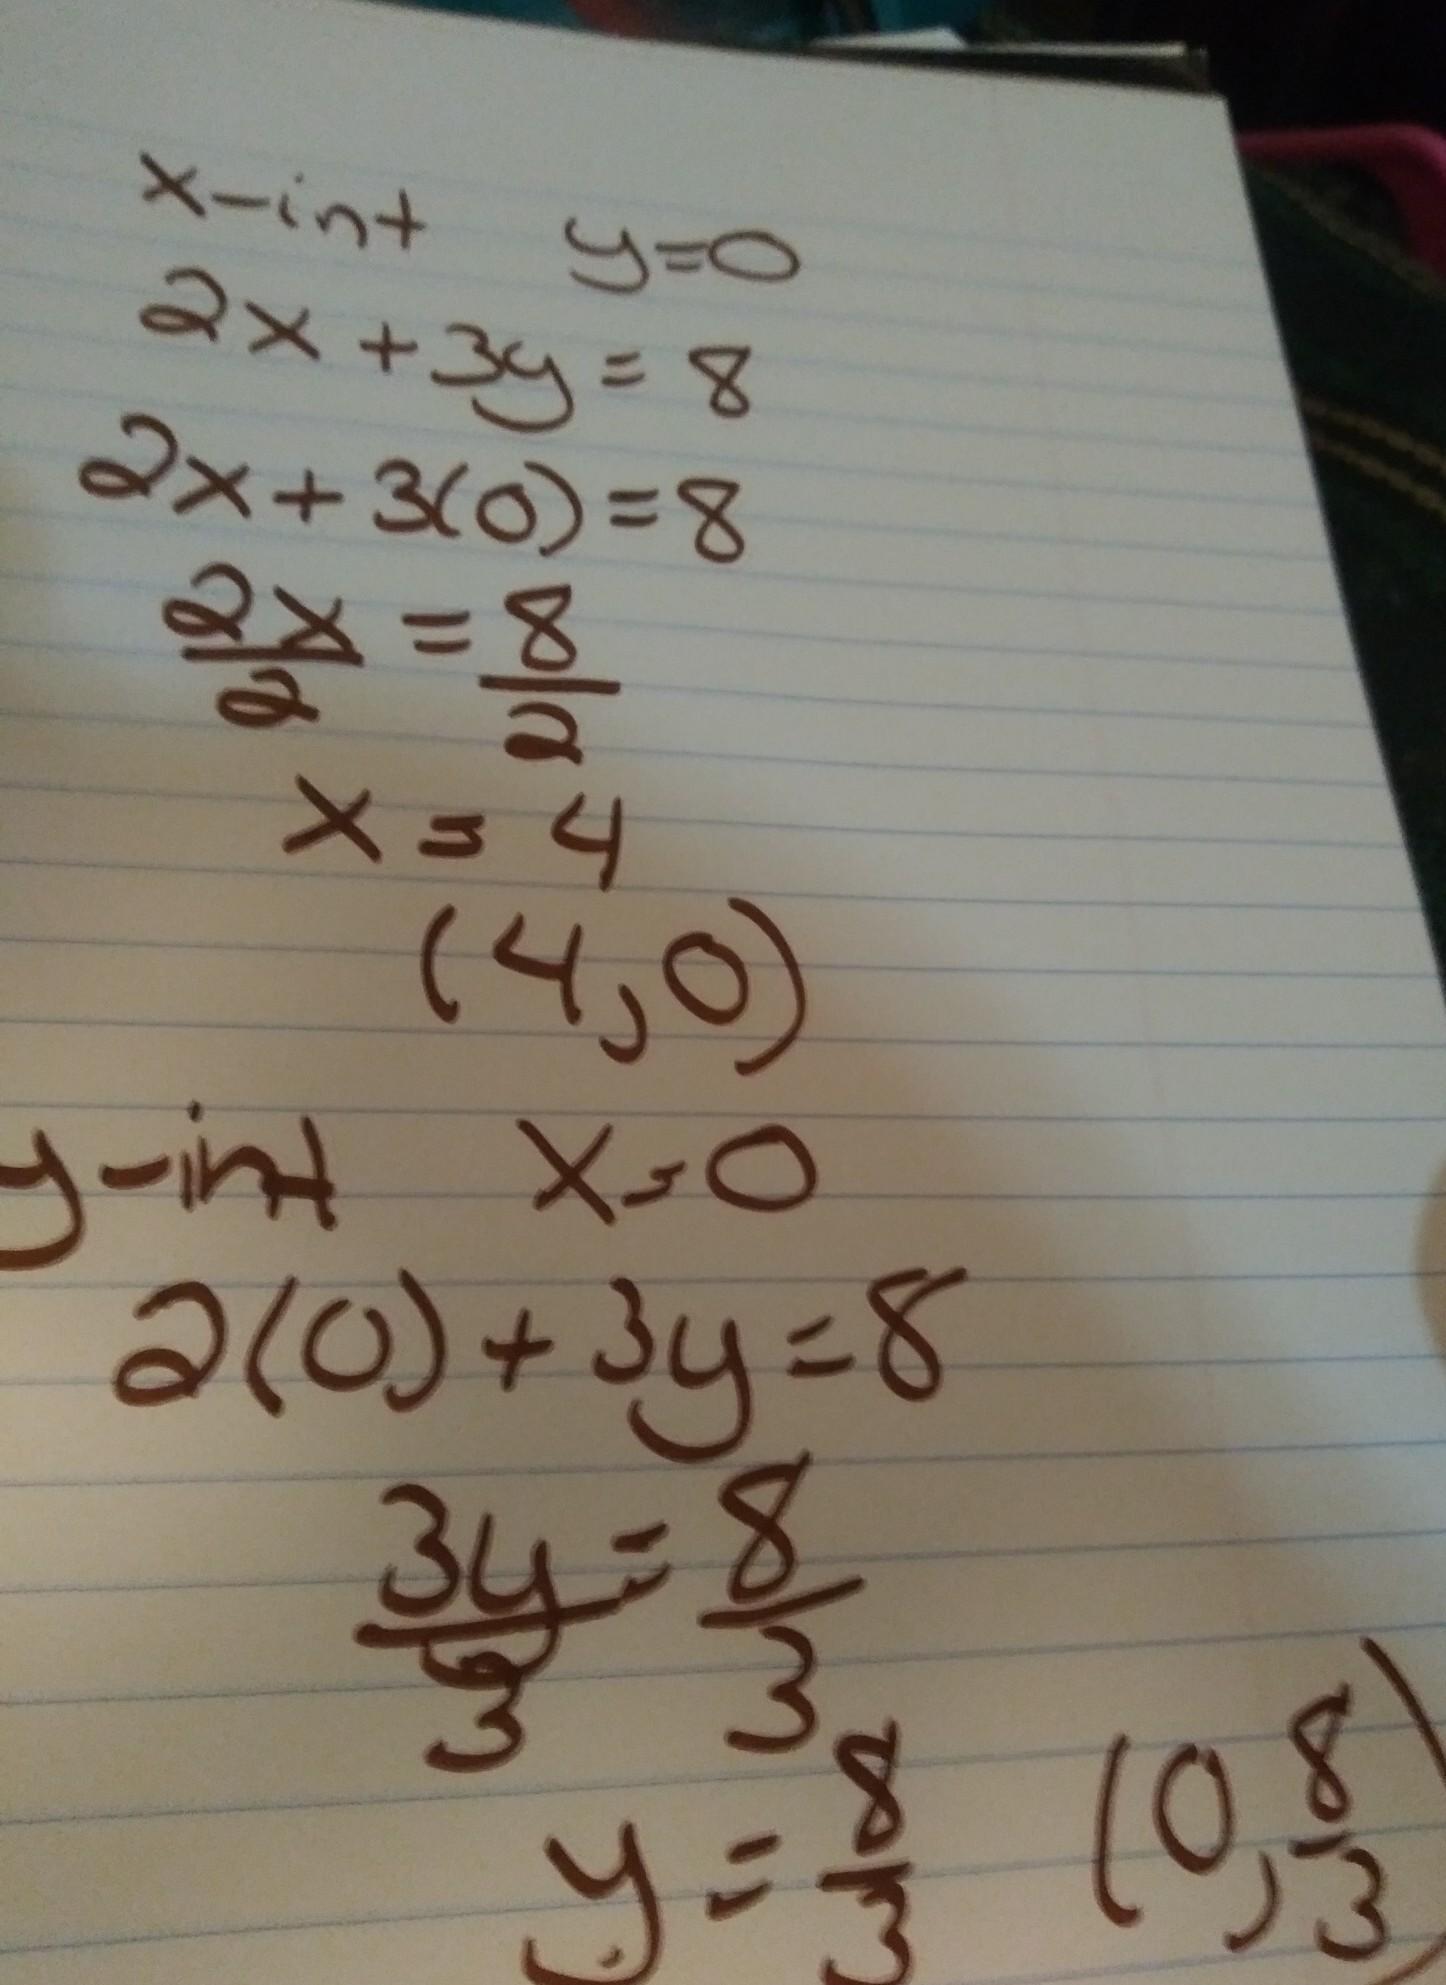 x-int y=0
2x + 3y = 8
2x + 3(0) = 8
2x/2 = 8/2
x = 4
(4,0)
y-int x=0
2(0) + 3y = 8
3y/3 = 8/3
y = 8/3 (0, 8/3)